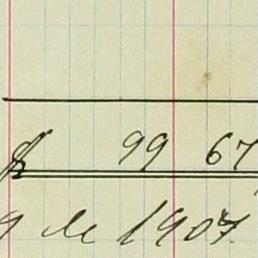 $ 99 67
9 de 1907.